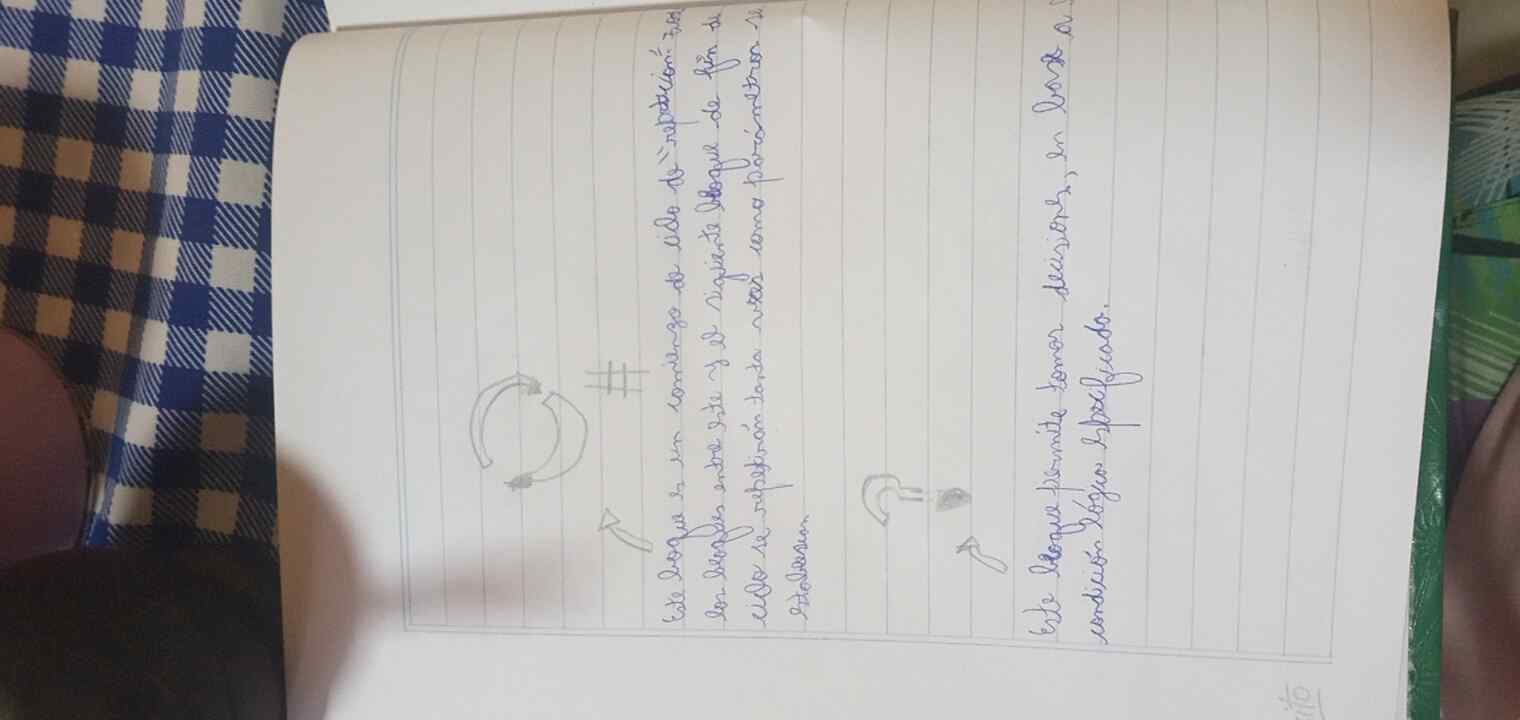 #
Este boque es un comienzo de ciclo de "repetición"
los boques entre este y el siguiente bloque de fin de
ciclo se repetirán tanta veces como parámetros se
establescan
?
Este bloque permite tomar decisiones, en base a
condición lógica especificada.